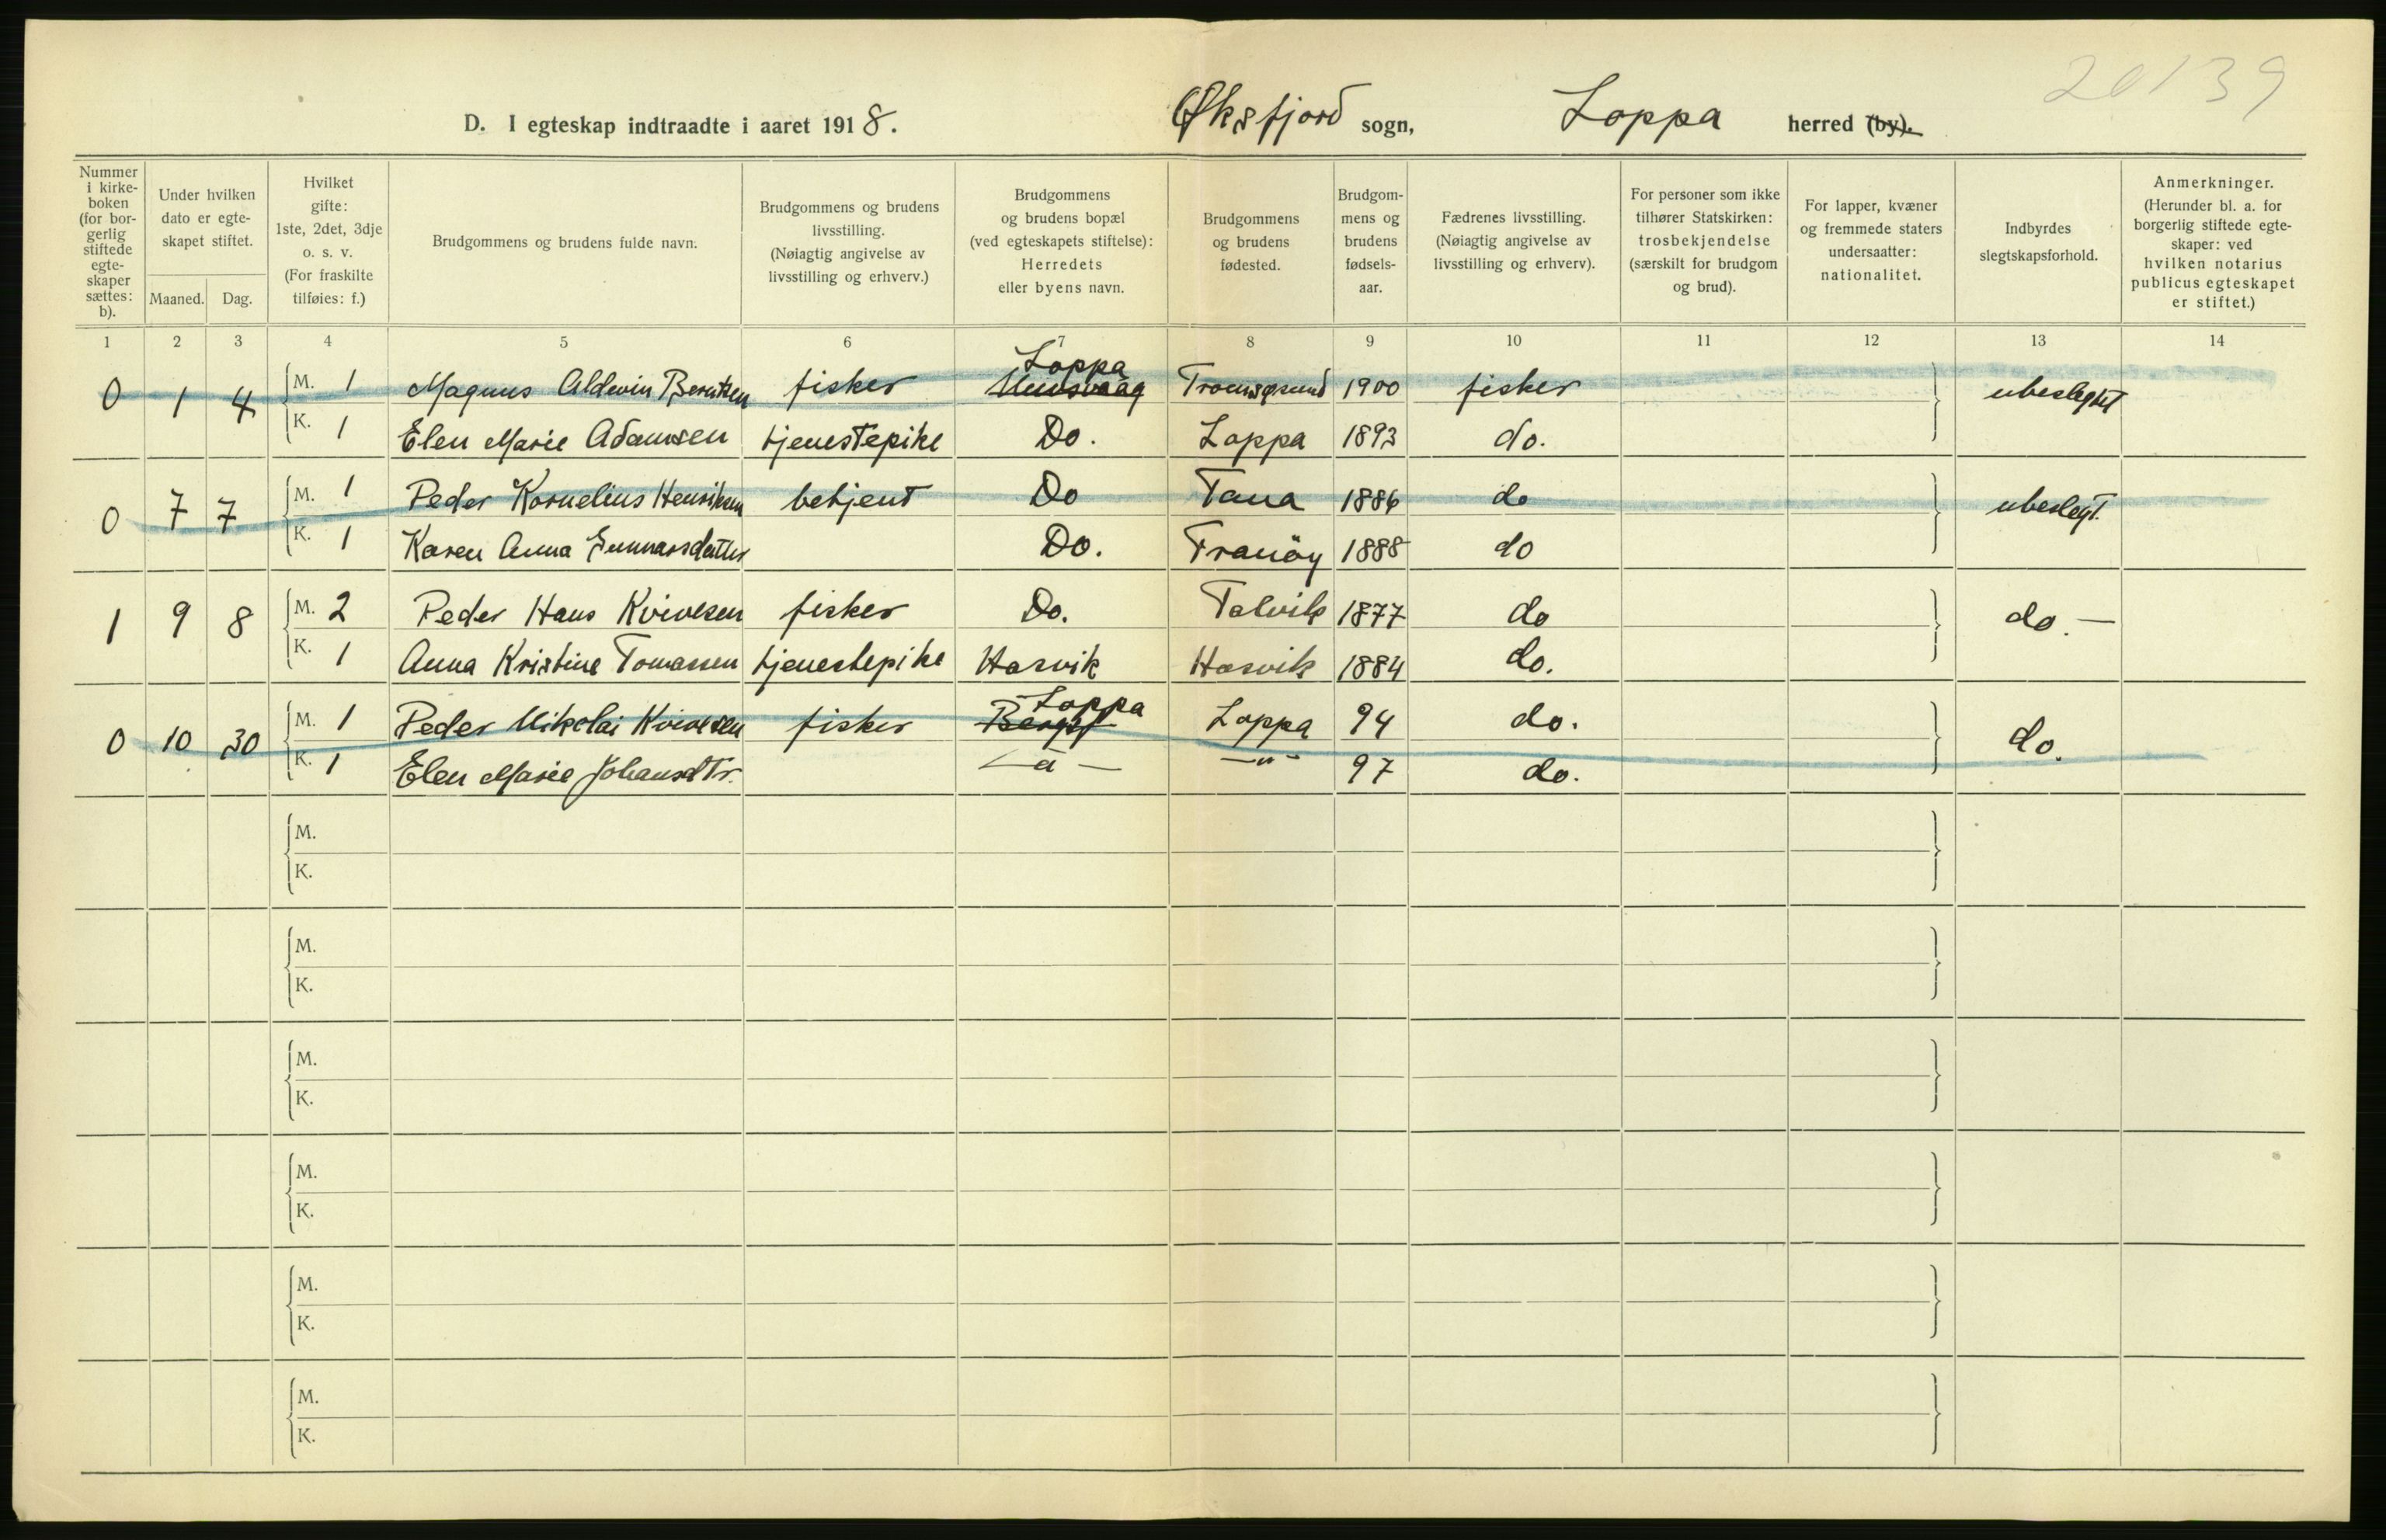 20139
D. I egteskap indtraadte i aaret 1918. Øksfjord sogn, Loppa herred (by).
Nummer i kirke-boken (for bor-gerlig stiftede egte-skaper sættes: b).
Under hvilken dato er egte-skapet stiftet.
Maaned. Dag.
Hvilket gifte: 1ste, 2det, 3dje o. s. v. (For fraskilte tilføies: f.)
Brudgommens og brudens fulde navn.
Brudgommens og brudens livsstilling. (Nøiagtig angivelse av livsstilling og erhverv.)
Brudgommens og brudens bopæl (ved egteskapets stiftelse): Herredets eller byens navn.
Brudgommens og brudens fødested.
Brudgom-mens og brudens fødsels-aar.
Fædrenes livsstilling. (Nøiagtig angivelse av livsstilling og erhverv).
For personer som ikke tilhører Statskirken: trosbekjendelse (særskilt for brudgom og brud).
For lapper, kvæner og fremmede staters undersaatter: nationalitet.
Indbyrdes slegtskapsforhold.
Anmerkninger. (Herunder bl. a. for borgerlig stiftede egte-skaper: ved hvilken notarius publicus egteskapet er stiftet.)
1 2 3 4 5 6 7 8 9 10 11 12 13 14
Loppa
0 1 4 M. 1 Magnus Aldevin Berntsen fisker Tromsøsund 1900 fisker ubeslegtet
K. 1 Elen Marie Adamsen tjenestepike Do. Loppa 1893 do.
0 7 7 M. 1 Peder Kornelius Henriksen betjent Do Tana 1886 do ubeslegt.
K. 1 Karen Anna Gunnarsdatter Do. Tranöy 1888 do
1 9 8 M. 2 Peder Hans Kvivesen fisker Do. Talvik 1877 do do.—
K. 1 Anna Kristine Tomassen tjenestepike Hasvik Hasvik 1884 do.
Loppa
0 10 30 M. 1 Peder Nikolai Kvivesen fisker Loppa 94 do. do.
K. 1 Elen Marie Johansdtr. —"— —"— 97 do.
M.
K.
M.
K.
M.
K.
M.
K.
M.
K.
M.
K.